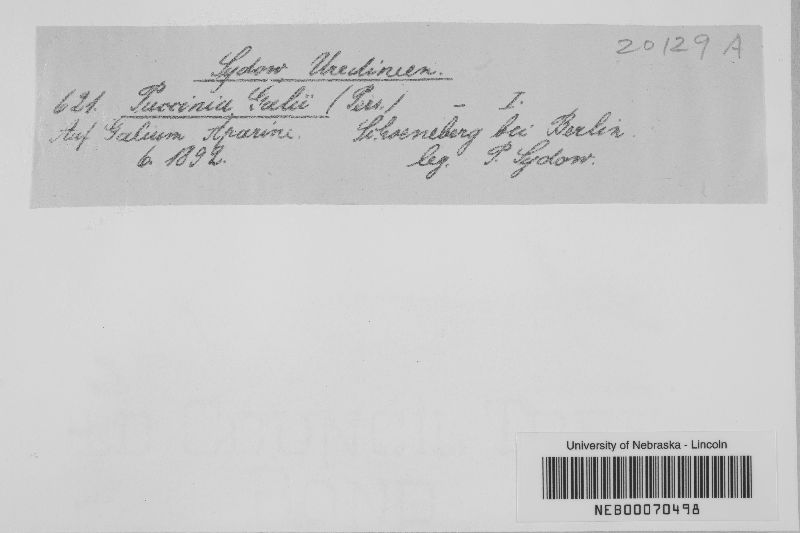 20129 A
Sydow Uredineen.
621. Puccinia Galii (Pers.) – I.
Auf Galium Aparine. Schoeneberg bei Berlin.
6. 1892. leg. P. Sydow.
University of Nebraska - Lincoln
NEB00070498